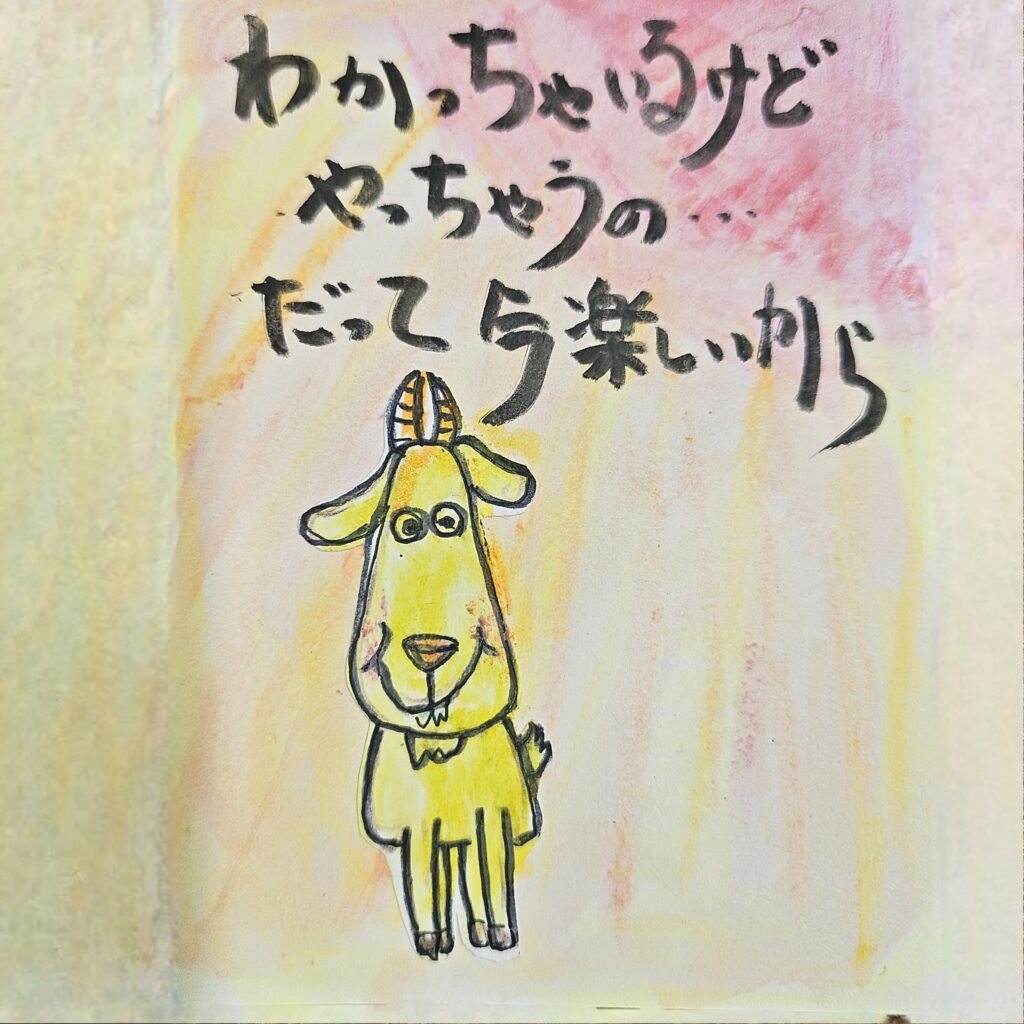 わかっちゃいるけど
やっちゃうの…
だって今楽しいから